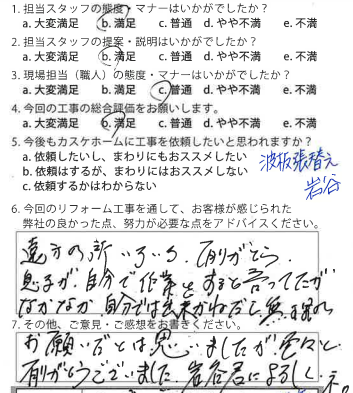 1. 担当スタッフの態度・マナーはいかがでしたか?
a. 大変満足 b. 満足 c. 普通 d. やや不満 e. 不満
2. 担当スタッフの提案・説明はいかがでしたか?
a. 大変満足 b. 満足 c. 普通 d. やや不満 e. 不満
3. 現場担当(職人)の態度・マナーはいかがでしたか?
a. 大変満足 b. 満足 c. 普通 d. やや不満 e. 不満
4. 今回の工事の総合評価をお願いします。
a. 大変満足 b. 満足 c. 普通 d. やや不満 e. 不満
5. 今後もカスケホームに工事を依頼したいと思われますか?
a. 依頼したいし、まわりにもおススメしたい
b. 依頼はするが、まわりにはおススメしない
c. 依頼するかはわからない
波板張替え
岩谷
6. 今回のリフォーム工事を通して、お客様が感じられた
弊社の良かった点、努力が必要な点をアドバイスください。
遠方の所いろいろ、有りがとう
息子が、自分で作業をすると言ってたが
なかなか、自分では出来かねだし無理な
7. その他、ご意見・ご感想をお書きください。
お願いだとは思いましたが、色々と
有りがとうございました、岩谷君によろしくネ。